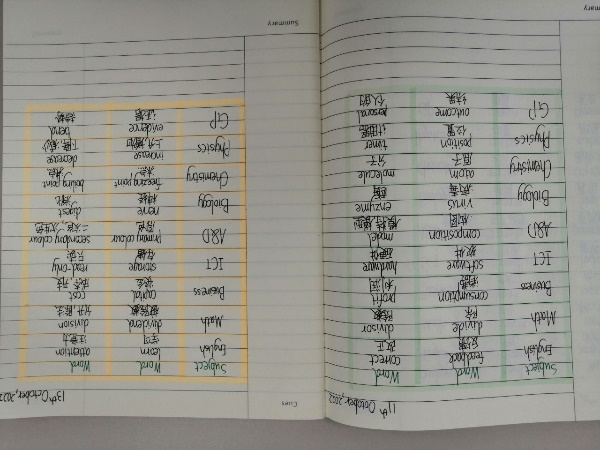 11th October, 2022
Subject Word Word
English feedback correct
反馈 改正
Math divide divisor
除 除数
Business consumption profit
消费 利润
ICT software hardware
软件 硬件
A&D composition model
构图
Biology virus enzyme
病毒 酶
Chemistry molecule
原子 分子
Physics position timer
位置 计时器
GP outcome personal
结果 个人的
Summary
13th October, 2022
Cues
Subject Word Word
English learn attention
学习 注意力
Math dividend division
被除数 分开,除法
Business capital cost
资金
ICT storage read-only
存储 只读
A&D primary colour secondary colour
原色
Biology nerve digest
神经 消化
Chemistry freezing point boiling point
冰点 沸点
Physics increase decrease
上升,增加 下降,减少
GP evidence trend
趋势
Summary